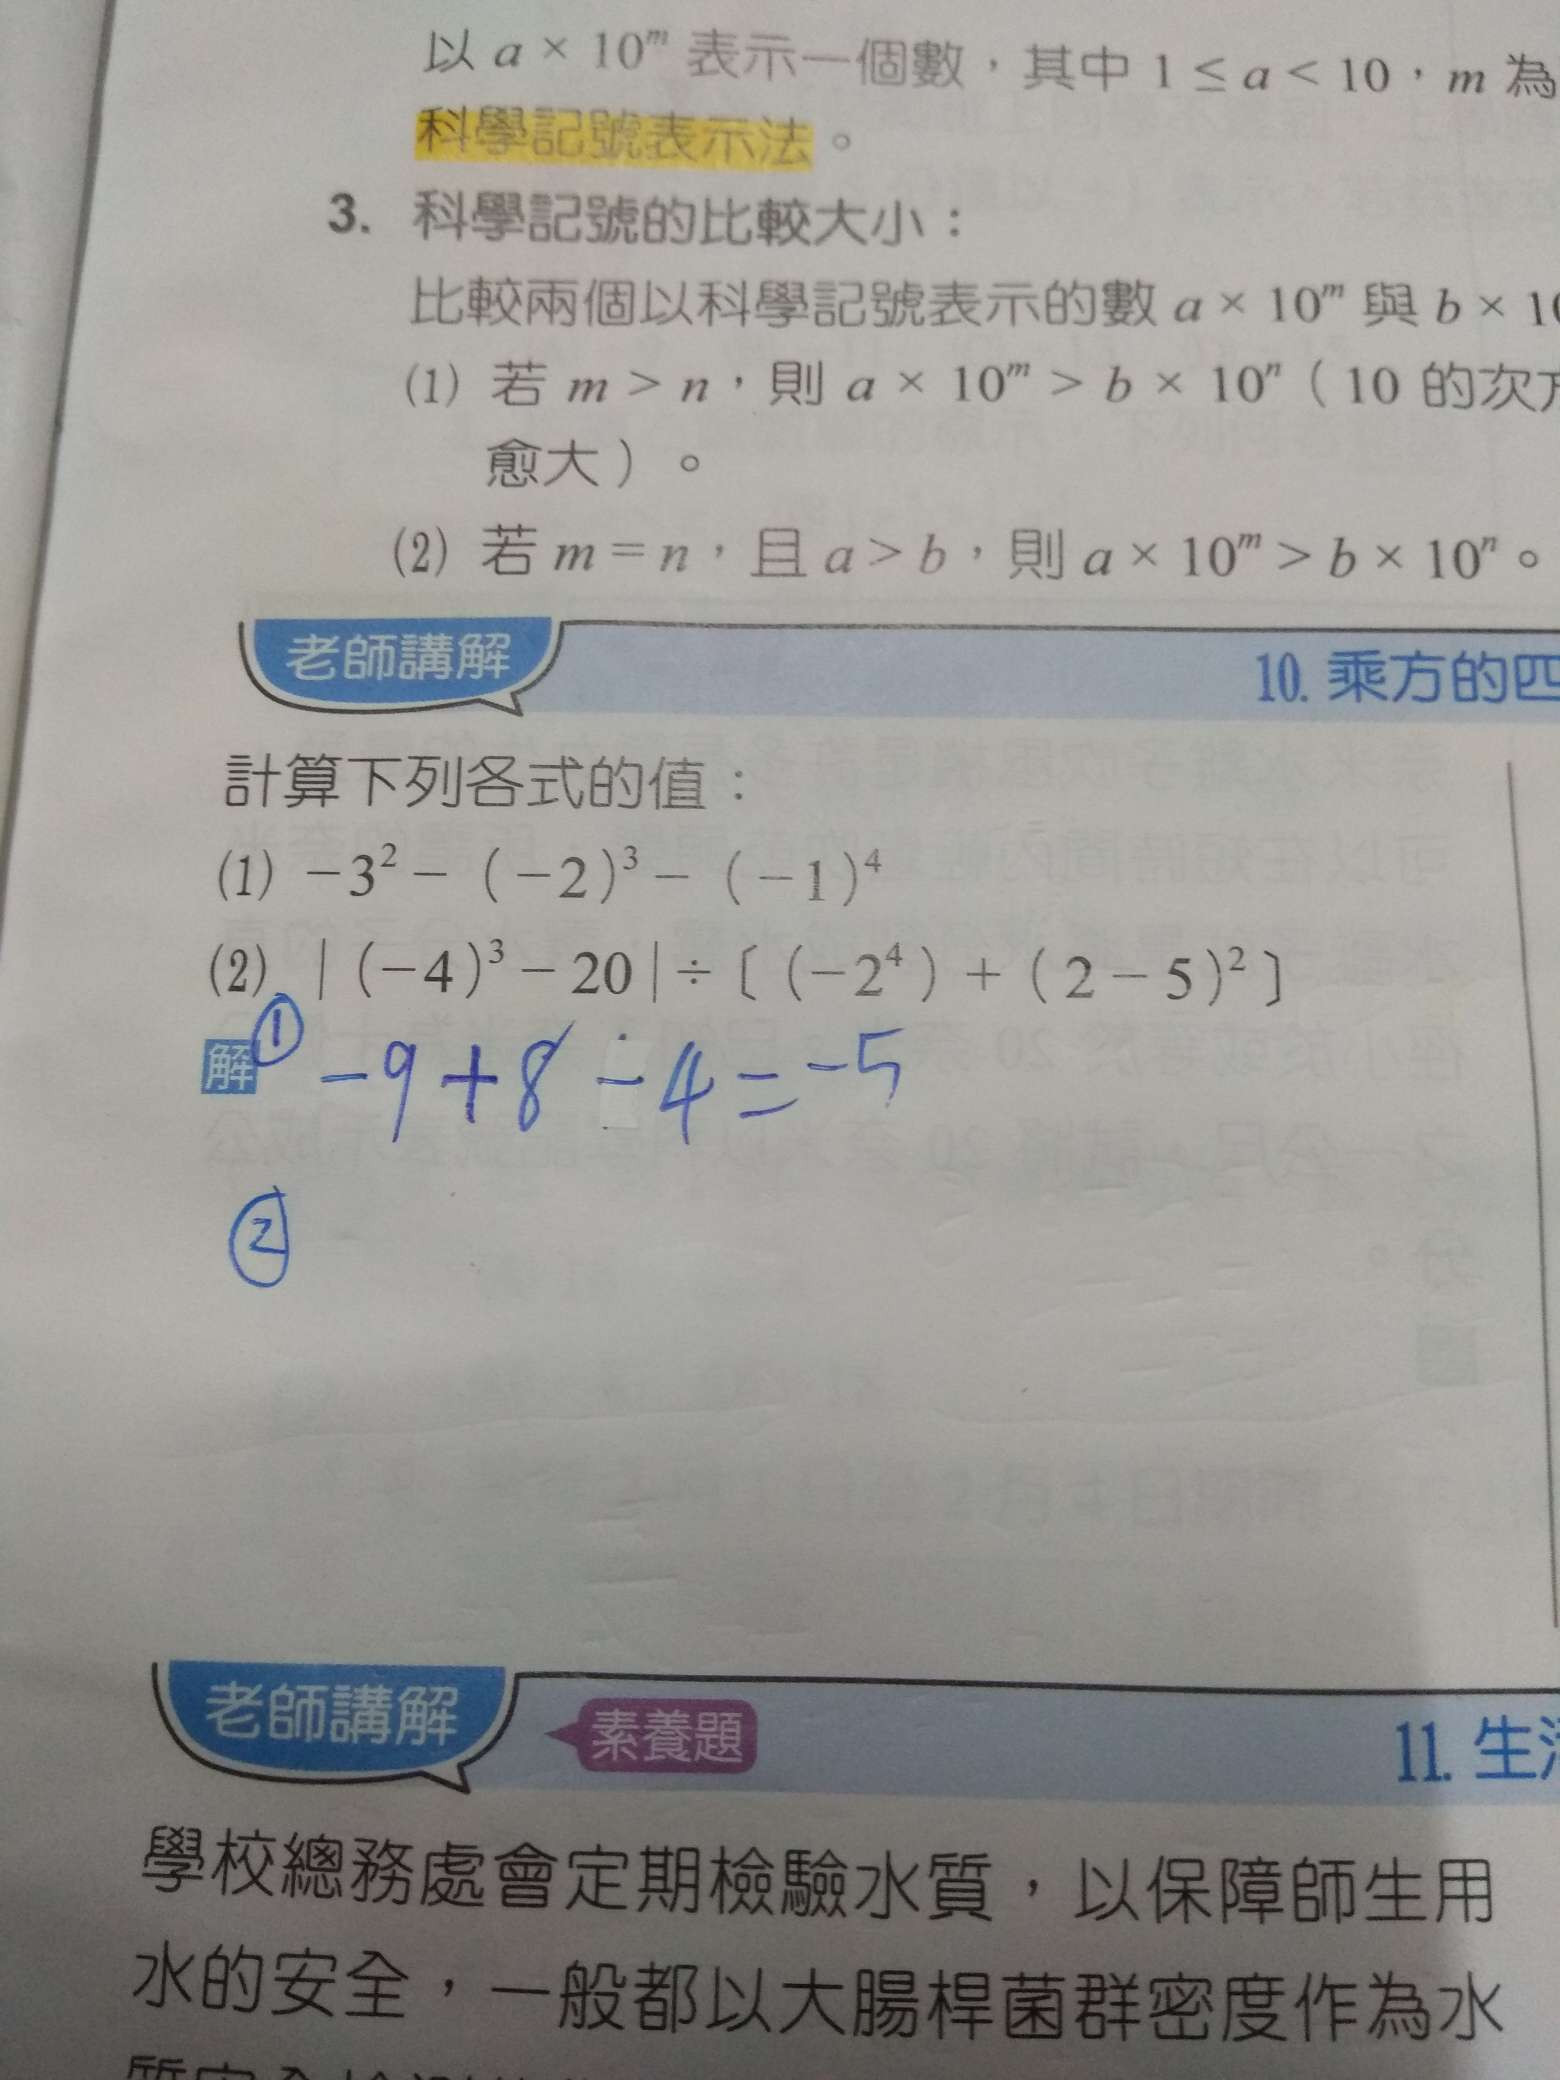 以 a × 10ᵐ 表示一個數，其中 1 ≤ a < 10，m 為
科學記號表示法。
3. 科學記號的比較大小：
比較兩個以科學記號表示的數 a × 10ᵐ 與 b × 10
(1) 若 m > n，則 a × 10ᵐ > b × 10ⁿ（10 的次方
愈大）。
(2) 若 m = n，且 a > b，則 a × 10ᵐ > b × 10ⁿ。
老師講解
10. 乘方的四
計算下列各式的值：
(1) −3² − (−2)³ − (−1)⁴
(2) | (−4)³ − 20 | ÷〔 (−2⁴) + (2 − 5)² 〕
解 ① −9 + 8 − 4 = −5
②
老師講解
素養題
11. 生活
學校總務處會定期檢驗水質，以保障師生用
水的安全，一般都以大腸桿菌群密度作為水
質安全檢測